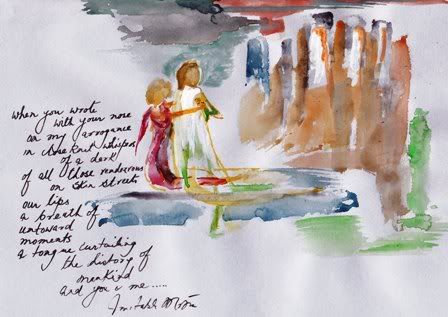 when you wrote
with your nose
on my arrogance
in close knit whispers
of a dark
of all those rendezvous
on skin streets
our lips
a breath of
untoward
moments
a tongue curtailing
the history of
mankind
and you & me.....